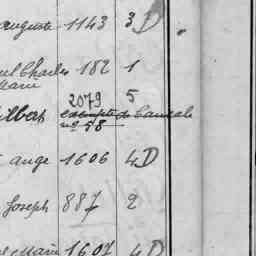 auguste 1143 3 D
Charles 182 1
Marie
2079 5
ilbert exempté de Cancale
nº 58
ange 1606 4 D
Joseph 887 2
Marie 1607 4 D